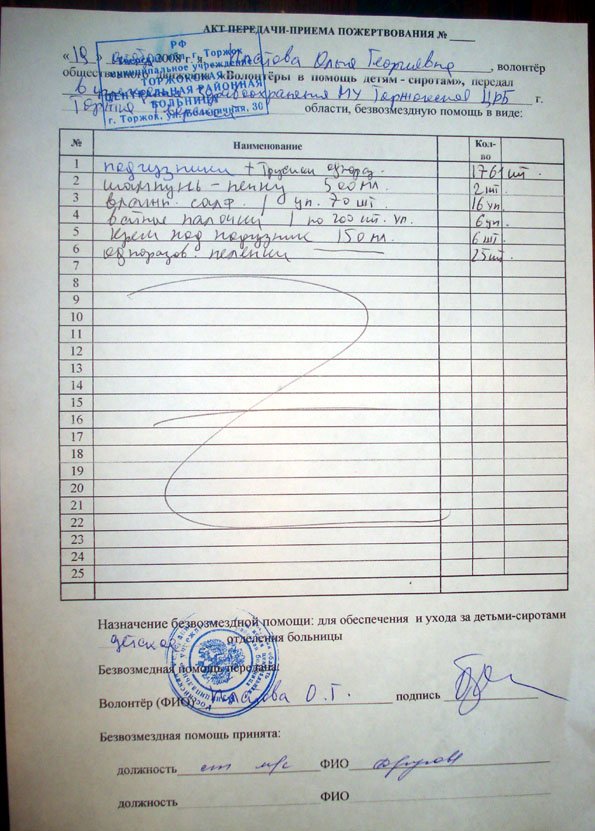 АКТ ПЕРЕДАЧИ-ПРИЕМА ПОЖЕРТВОВАНИЯ №
РФ
г. Торжок
муниципальное учреждение
ТОРЖОКСКАЯ
ЦЕНТРАЛЬНАЯ РАЙОННАЯ
БОЛЬНИЦА
г. Торжок, ул. Больничная, 30
«19» 2008 г. я, Ольга Георгиевна, волонтёр
общественного движения «Волонтёры в помощь детям - сиротам», передал
в учреждение здравоохранения МУ Торжокская ЦРБ г.
Торжка области, безвозмездную помощь в виде:
№ Наименование Кол-во
1 подгузники + Трусики однораз. 1761 шт.
2 шампунь - пенку 500 мл. 2 шт.
3 влажн. салф. 1 уп. 70 шт. 16 уп.
4 ватные палочки 1 по 200 шт. уп. 6 уп.
5 Крем под подгузник 150 мл. 6 шт.
6 одноразов. пеленки 25 шт.
7
8
9
10
11
12
13
14
15
16
17
18
19
20
21
22
23
24
25
Назначение безвозмездной помощи: для обеспечения и ухода за детьми-сиротами
детского отделения больницы
Безвозмездная помощь передана:
Волонтёр (ФИО) О. Г. подпись
Безвозмездная помощь принята:
должность ст м/с ФИО
должность ФИО